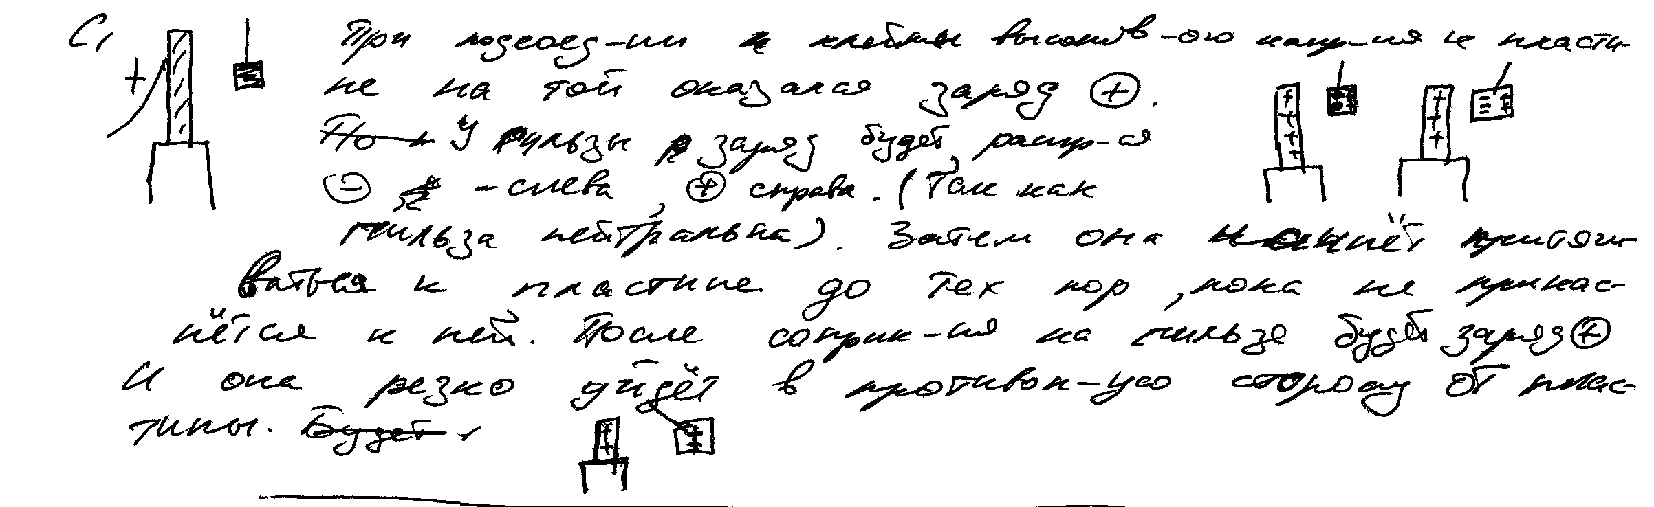 С1 При подсоед-нии к клеммы высоков-ого напр-ия к пласти-
+ не на той оказался заряд ⊕.
По У гильзы заряд будет распр-ся
⊖ - слева, ⊕ справа. (Так как
гильза нейтральна). Затем она начнёт притяги-
ваться к пластине до тех пор, пока не прикос-
нётся к ней. После соприк-ия на гильзе будет заряд ⊕
И она резко уйдёт в противоп-ую сторону от плас-
тины. Будет